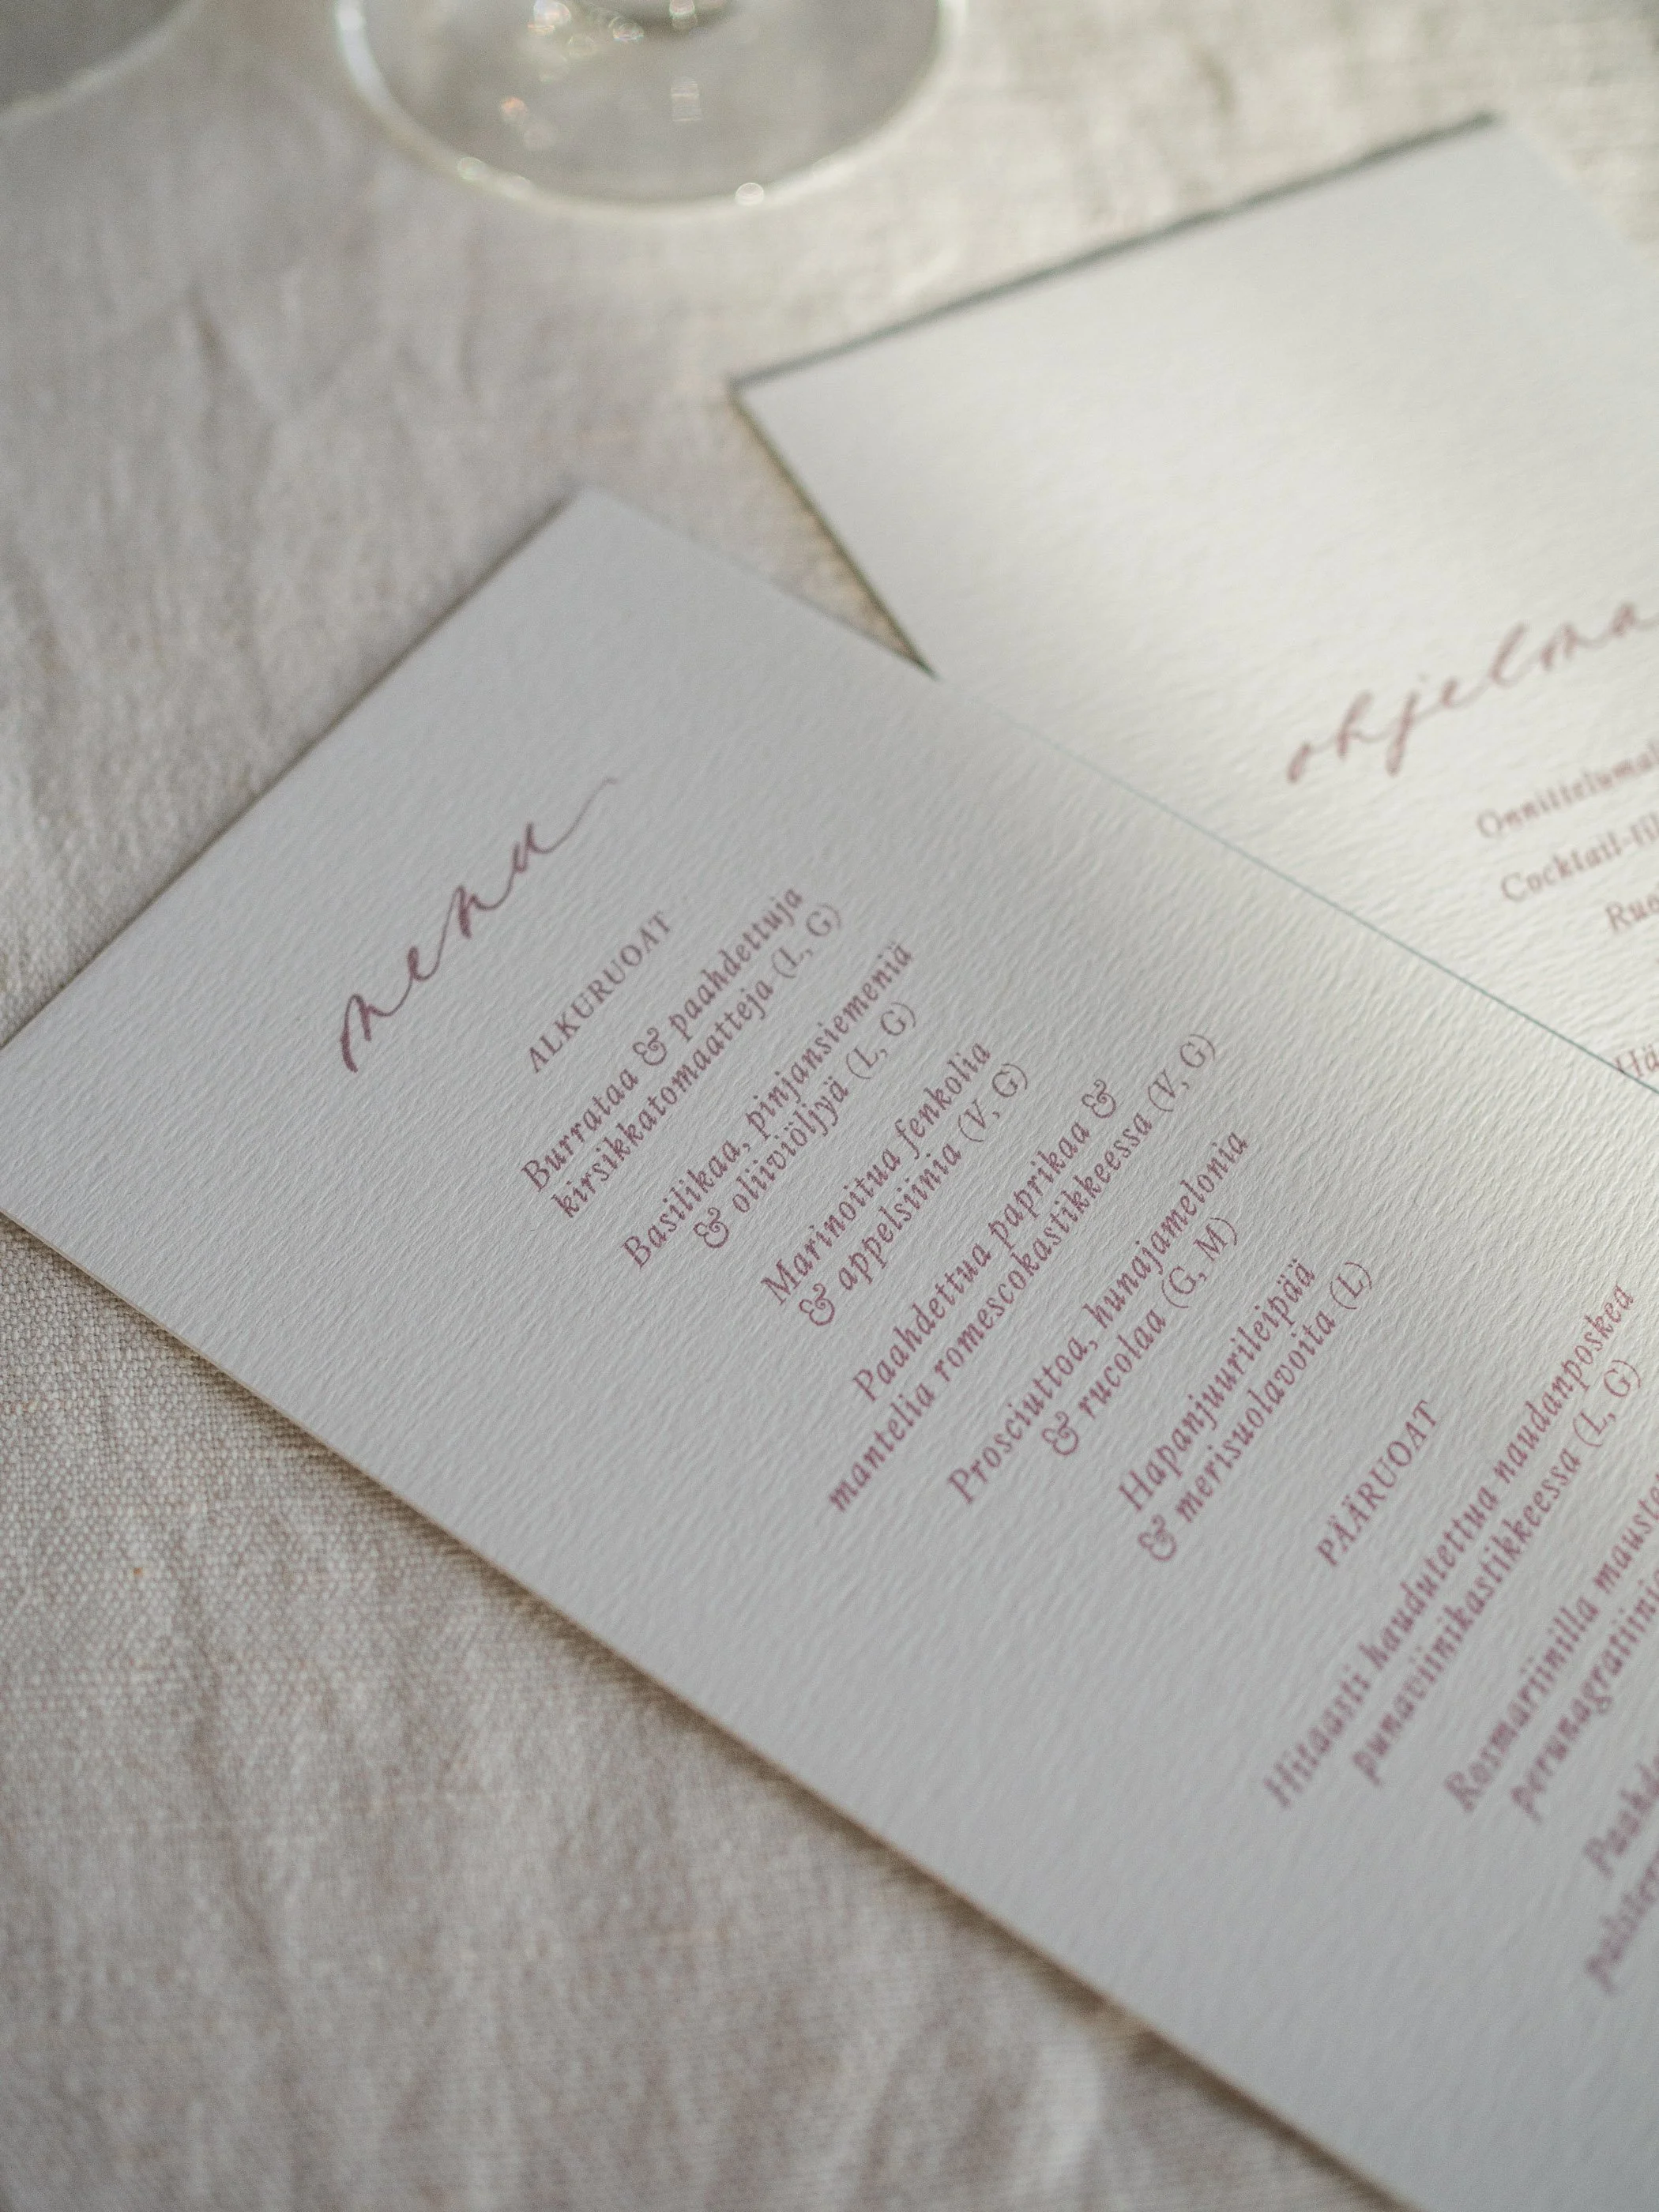 menu
ALKURUOAT
Burrataa & paahdettuja
kirsikkatomaatteja (L, G)
Basilikaa, pinjansiemeniä
& oliiviöljyä (L, G)
Marinoitua fenkolia
& appelsiinia (V, G)
Paahdettua paprikaa &
mantelia romescokastikkeessa (V, G)
Prosciuttoa, hunajamelonia
& rucolaa (G, M)
Hapanjuurileipää
& merisuolavoita (L)
PÄÄRUOAT
Hitaasti haudutettua naudanposkea
punaviinikastikkeessa (L, G)
Rosmariinilla
ohjelma